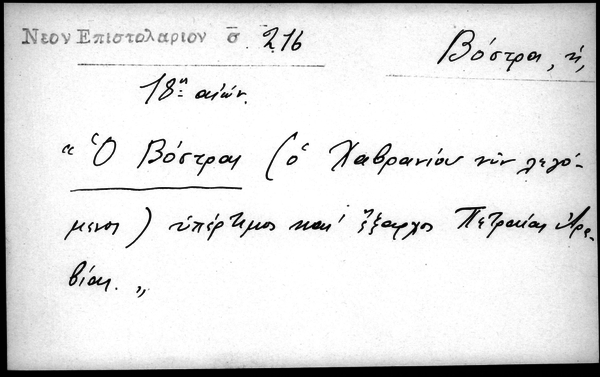 Νεον Επιστολαριον σ 216
Βόστρα, ἡ,
18η αἰών.
“Ὁ Βόστρας (ὁ Χαβρανίου νῦν λεγό-
μενος) ὑπέρτιμος καὶ ἔξαρχος Πετραίας Ἀρα-
βίας.„